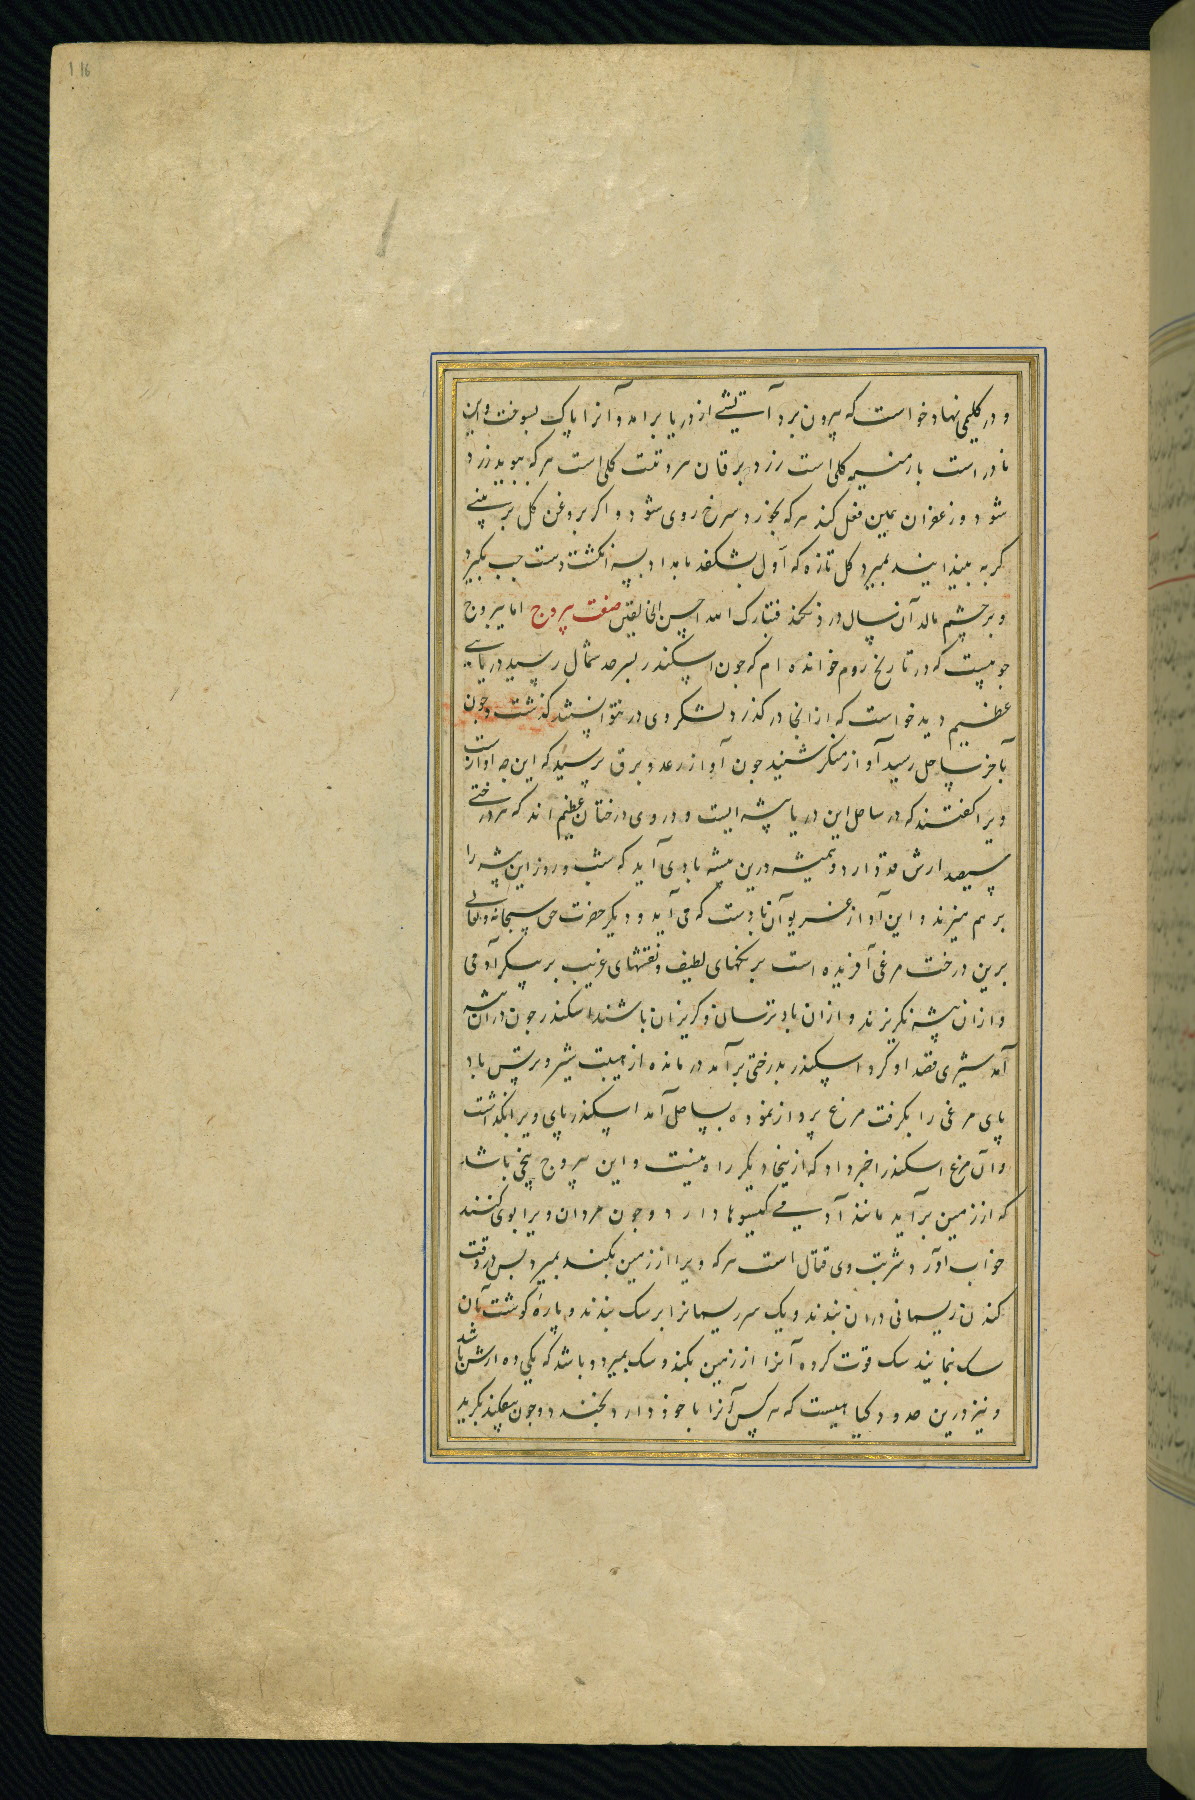 116
و در گلیمی نهاد خواست که بیرون برد آتشی از دریا برامد و آنرا پاک بسوخت واین
نادر است بارمنیه گلی است زرد برقان مردتنت گلی است هر که ببوید زرد
شود و زعفران همین فعل کند هر که بخورد سرخ روی شود و اکر بروغن کل بر بینی
کربه بیندایند بمیرد کل تازه که اول بشکفد بامداد بسه انکشت دست چپ بگیرد
و برچشم مالد آن سال درد نکند فتبارک الله احسن الخالقین صفت یبروج اما یبروج
چوبیست که در تاریخ روم خوانده ام که چون اسکندر بسرحد شمال رسید دریایی
عظیم دید خواست که ازانجا در کذرد لشکر وی در نتوانستند کذشت و چون
بآخر ساحل رسید آواز منکر شنید چون آواز رعد و برق پرسید که این چه آوازست
ویرا کفتند که در ساحل این دریا بیشه ایست و در وی درختان عظیم اند که هر درختی
سیصد ارش قد دارد و همیشه درین بیشه باد می آید که شب و روز این بیشه را
بر هم میزند و این آواز غریو آن بادست که می آید و دیکر حضرت حق سبحانه و تعالی
برین درخت مرغی آفریده است برنکهای لطیف و نقشهای غریب بر پیکر آدمی
و ازان بیشه نکریزند و ازان باد ترسان و کریزان باشند اسکندر چون دران بیشه
آمد شیری قصد او کرد اسکندر بدرختی بر آمد درمانده از هیبت شیر و ترس باد
پای مرغی را بکرفت مرغ پرواز نموده بساحل آمد اسکندر پای ویرا بگذاشت
وآن مرغ اسکندر را خبر داد که ازینجا دیکر راه نیست و این یبروج بیخی باشد
که از زمین برآید مانند آدمی کیسوها دارد و چون مردان ویرا بوی کنند
خواب آورد شربت وی قتال است هر که ویرا از زمین بکند بمیرد پس در وقت
کندن ریسمانی دران بندند و یک سر ریسمانرا بر سک بندند و پاره کوشت بآن
سک نمایند سک قوت کرده آنرا از زمین بکند و سک بمیرد و باشد که یکی ده ارش باشد
و نیز درین حدود کیاهیست که هر کس آنرا با خود دارد بخندد و چون بیفکند بکرید